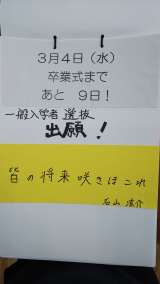 3月4日（水）
卒業式まで
あと　9日！
一般入学者選抜
出願！
皆の将来咲きほこれ
石山